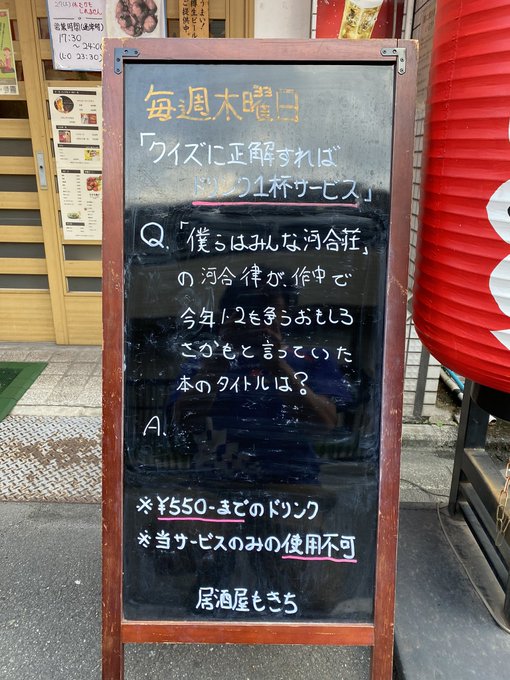 営業時間(通常時)
17:30
～24:00
(L.O 23:30)
うまい!
樽生ビール
ご提供中
毎週木曜日
「クイズに正解すれば
ドリンク1杯サービス」
Q.「僕らはみんな河合荘」
の河合律が、作中で
今年1・2も争うおもしろ
さかもと言っていた
本のタイトルは?
A.
※¥550-までのドリンク
※当サービスのみの使用不可
居酒屋もきち